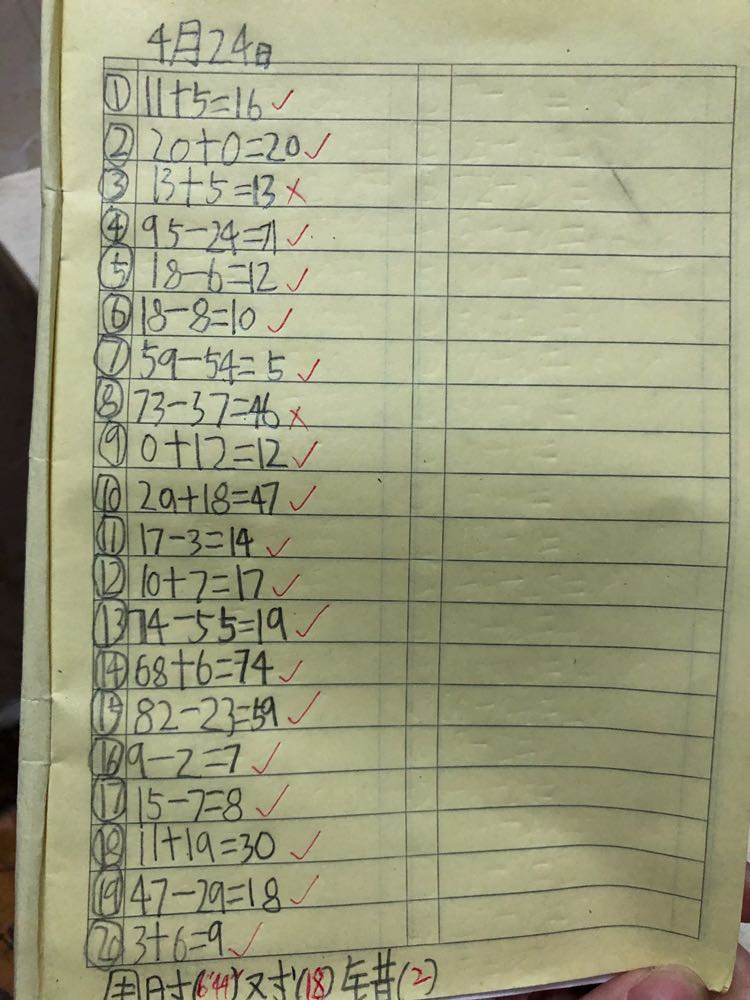 4月24日
① 11+5=16 ✓
② 20+0=20 ✓
③ 13+5=13 ×
④ 95-24=71 ✓
⑤ 18-6=12 ✓
⑥ 18-8=10 ✓
⑦ 59-54=5 ✓
⑧ 73-37=46 ×
⑨ 0+12=12 ✓
⑩ 29+18=47 ✓
⑪ 17-3=14 ✓
⑫ 10+7=17 ✓
⑬ 74-55=19 ✓
⑭ 68+6=74 ✓
⑮ 82-23=59 ✓
⑯ 9-2=7 ✓
⑰ 15-7=8 ✓
⑱ 11+19=30 ✓
⑲ 47-29=18 ✓
⑳ 3+6=9 ✓
用时(6'44") 对(18) 错(2)